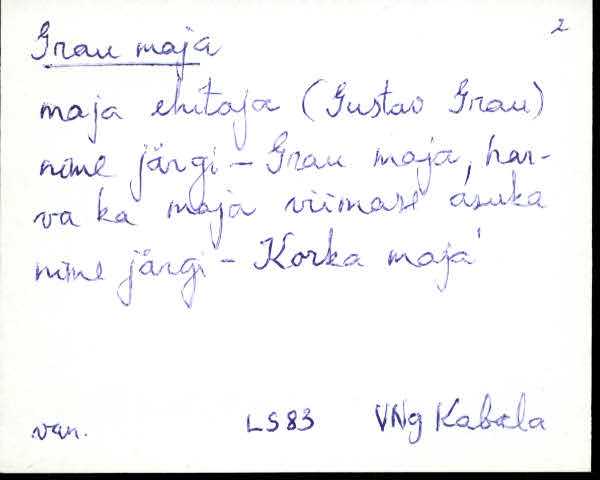 2
Grau maja
maja ehitaja (Gustav Grau)
nime järgi - Grau maja, har-
va ka maja viimase asuka
nime järgi - Korka maja
van. LS83 VNg Kabala